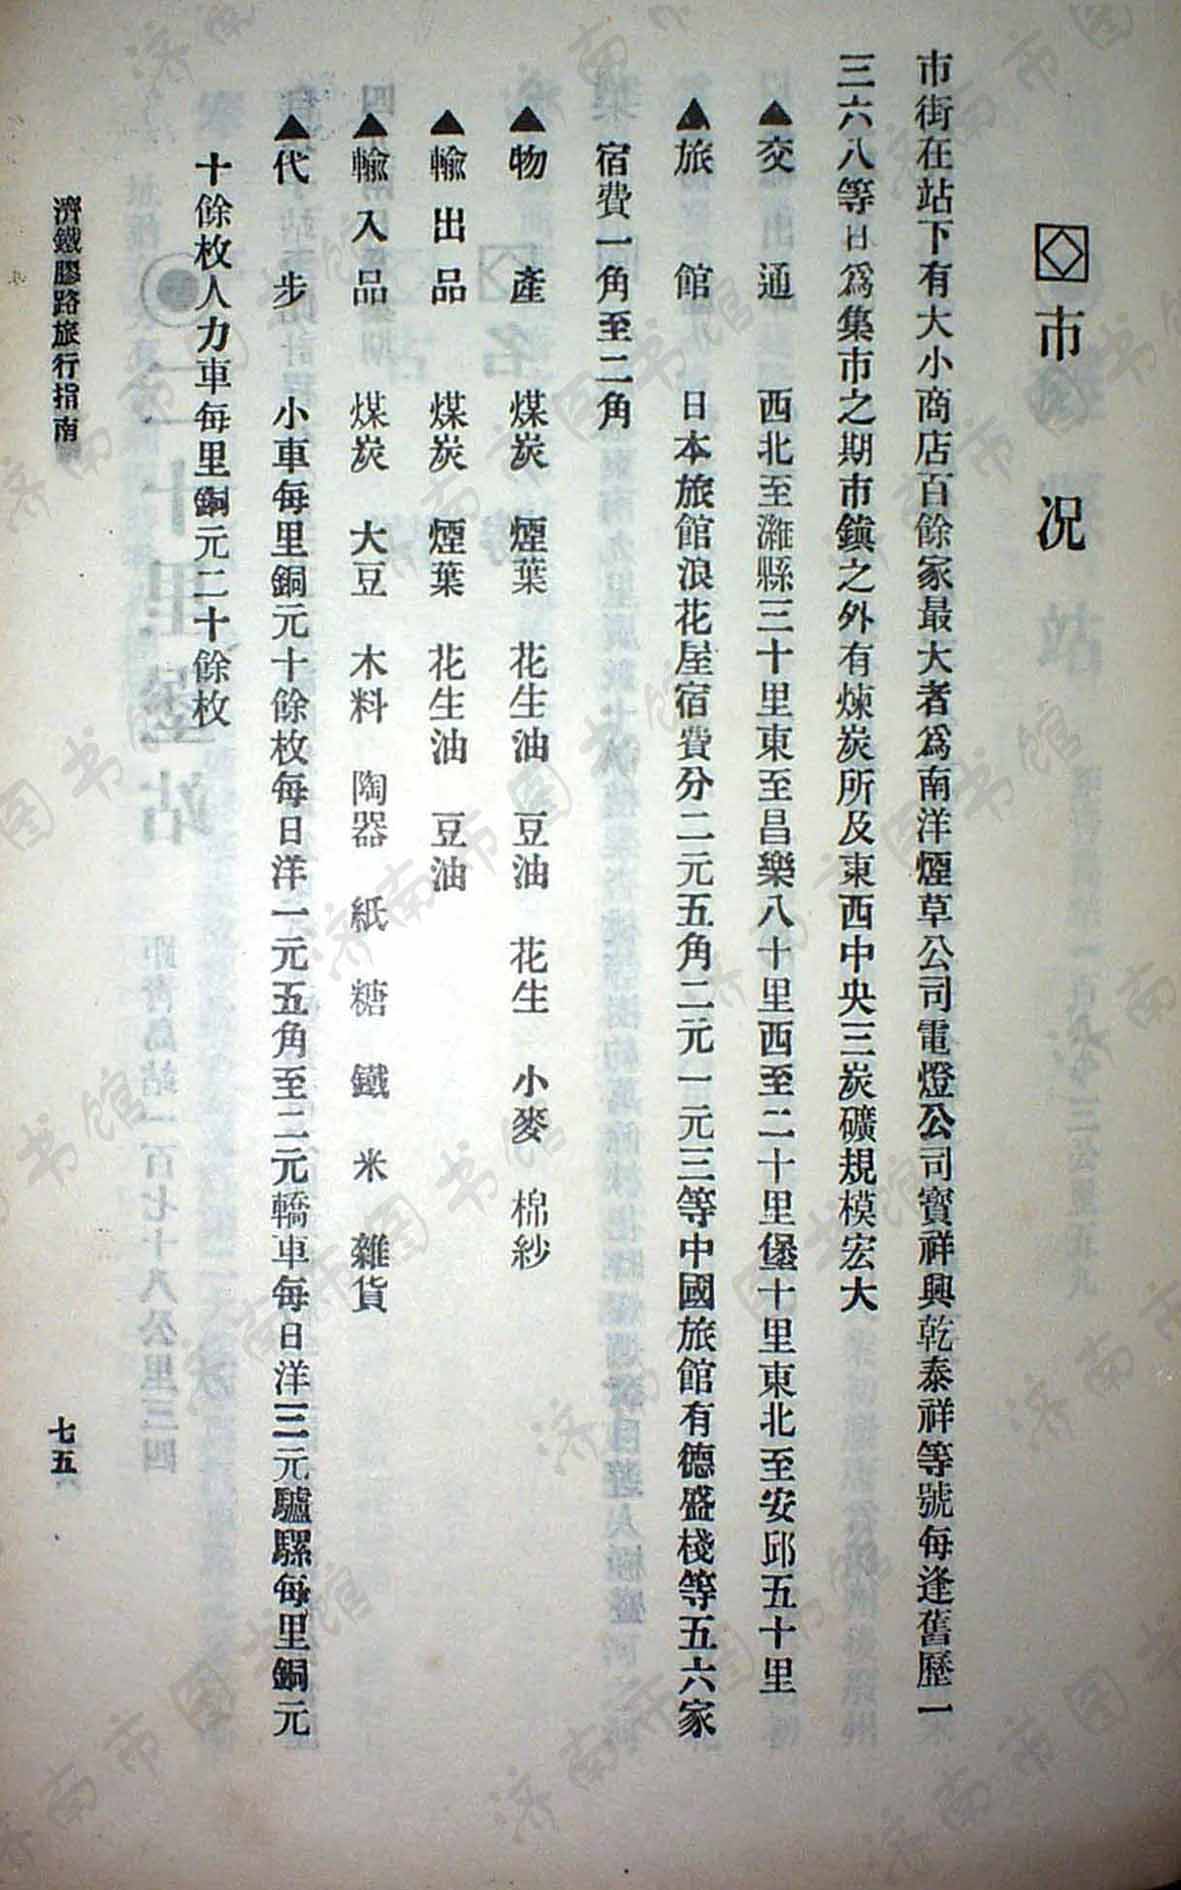 市况
市街在站下有大小商店百餘家最大者爲南洋煙草公司電燈公司寶祥興乾泰祥等號每逢舊歷一
三六八等日爲集市之期市鎮之外有煉炭所及東西中央三炭礦規模宏大
▲交通 西北至濰縣三十里東至昌樂八十里西至二十里堡十里東北至安邱五十里
▲旅館 日本旅館浪花屋宿費分二元五角二元一元三等中國旅館有德盛棧等五六家
宿費一角至二角
▲物產 煤炭 煙葉 花生油 豆油 花生 小麥 棉紗
▲輸出品 煤炭 煙葉 花生油 豆油
▲輸入品 煤炭 大豆 木料 陶器 紙 糖 鐵 米 雜貨
▲代步 小車每里銅元十餘枚每日洋一元五角至二元轎車每日洋三元驢騾每里銅元
十餘枚人力車每里銅元二十餘枚
濟鐵膠路旅行指南
七五
济南市图书馆